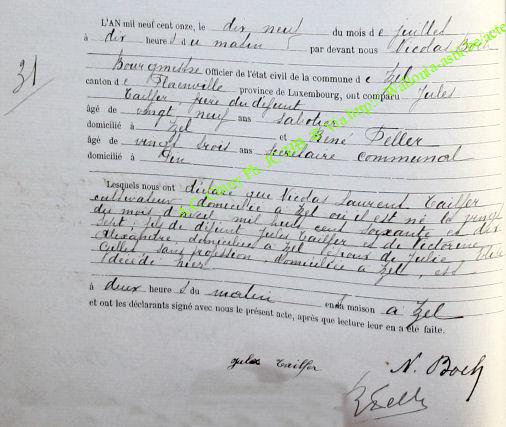 31
L'AN mil neuf cent onze, le dix neuf du mois de juillet
à dix heures du matin par devant nous Nicolas Boch
Bourgmestre officier de l'état civil de la commune de Tzel
canton de province de Luxembourg, ont comparu Jules
Tailfer, frère du défunt
âgé de vingt neuf ans sabotier
domicilié à Tzel et René Peller
âgé de vingt trois ans secrétaire communal
domicilié à
Lesquels nous ont déclaré que Nicolas Laurent Tailfer
cultivateur, domicilié à Tzel où il est né le vingt
du mois d'avril mil huit cent soixante et dix
sept, fils de défunt Jules Tailfer et de Victorine
Alexandre, domiciliés à Tzel époux de Julie,
Gilles sans profession, domiciliée à Tzel, est
décédé hier
à deux heures du matin en sa maison à Tzel
et ont les déclarants signé avec nous le présent acte, après que lecture leur en a été faite.
Jules Tailfer
N. Boch